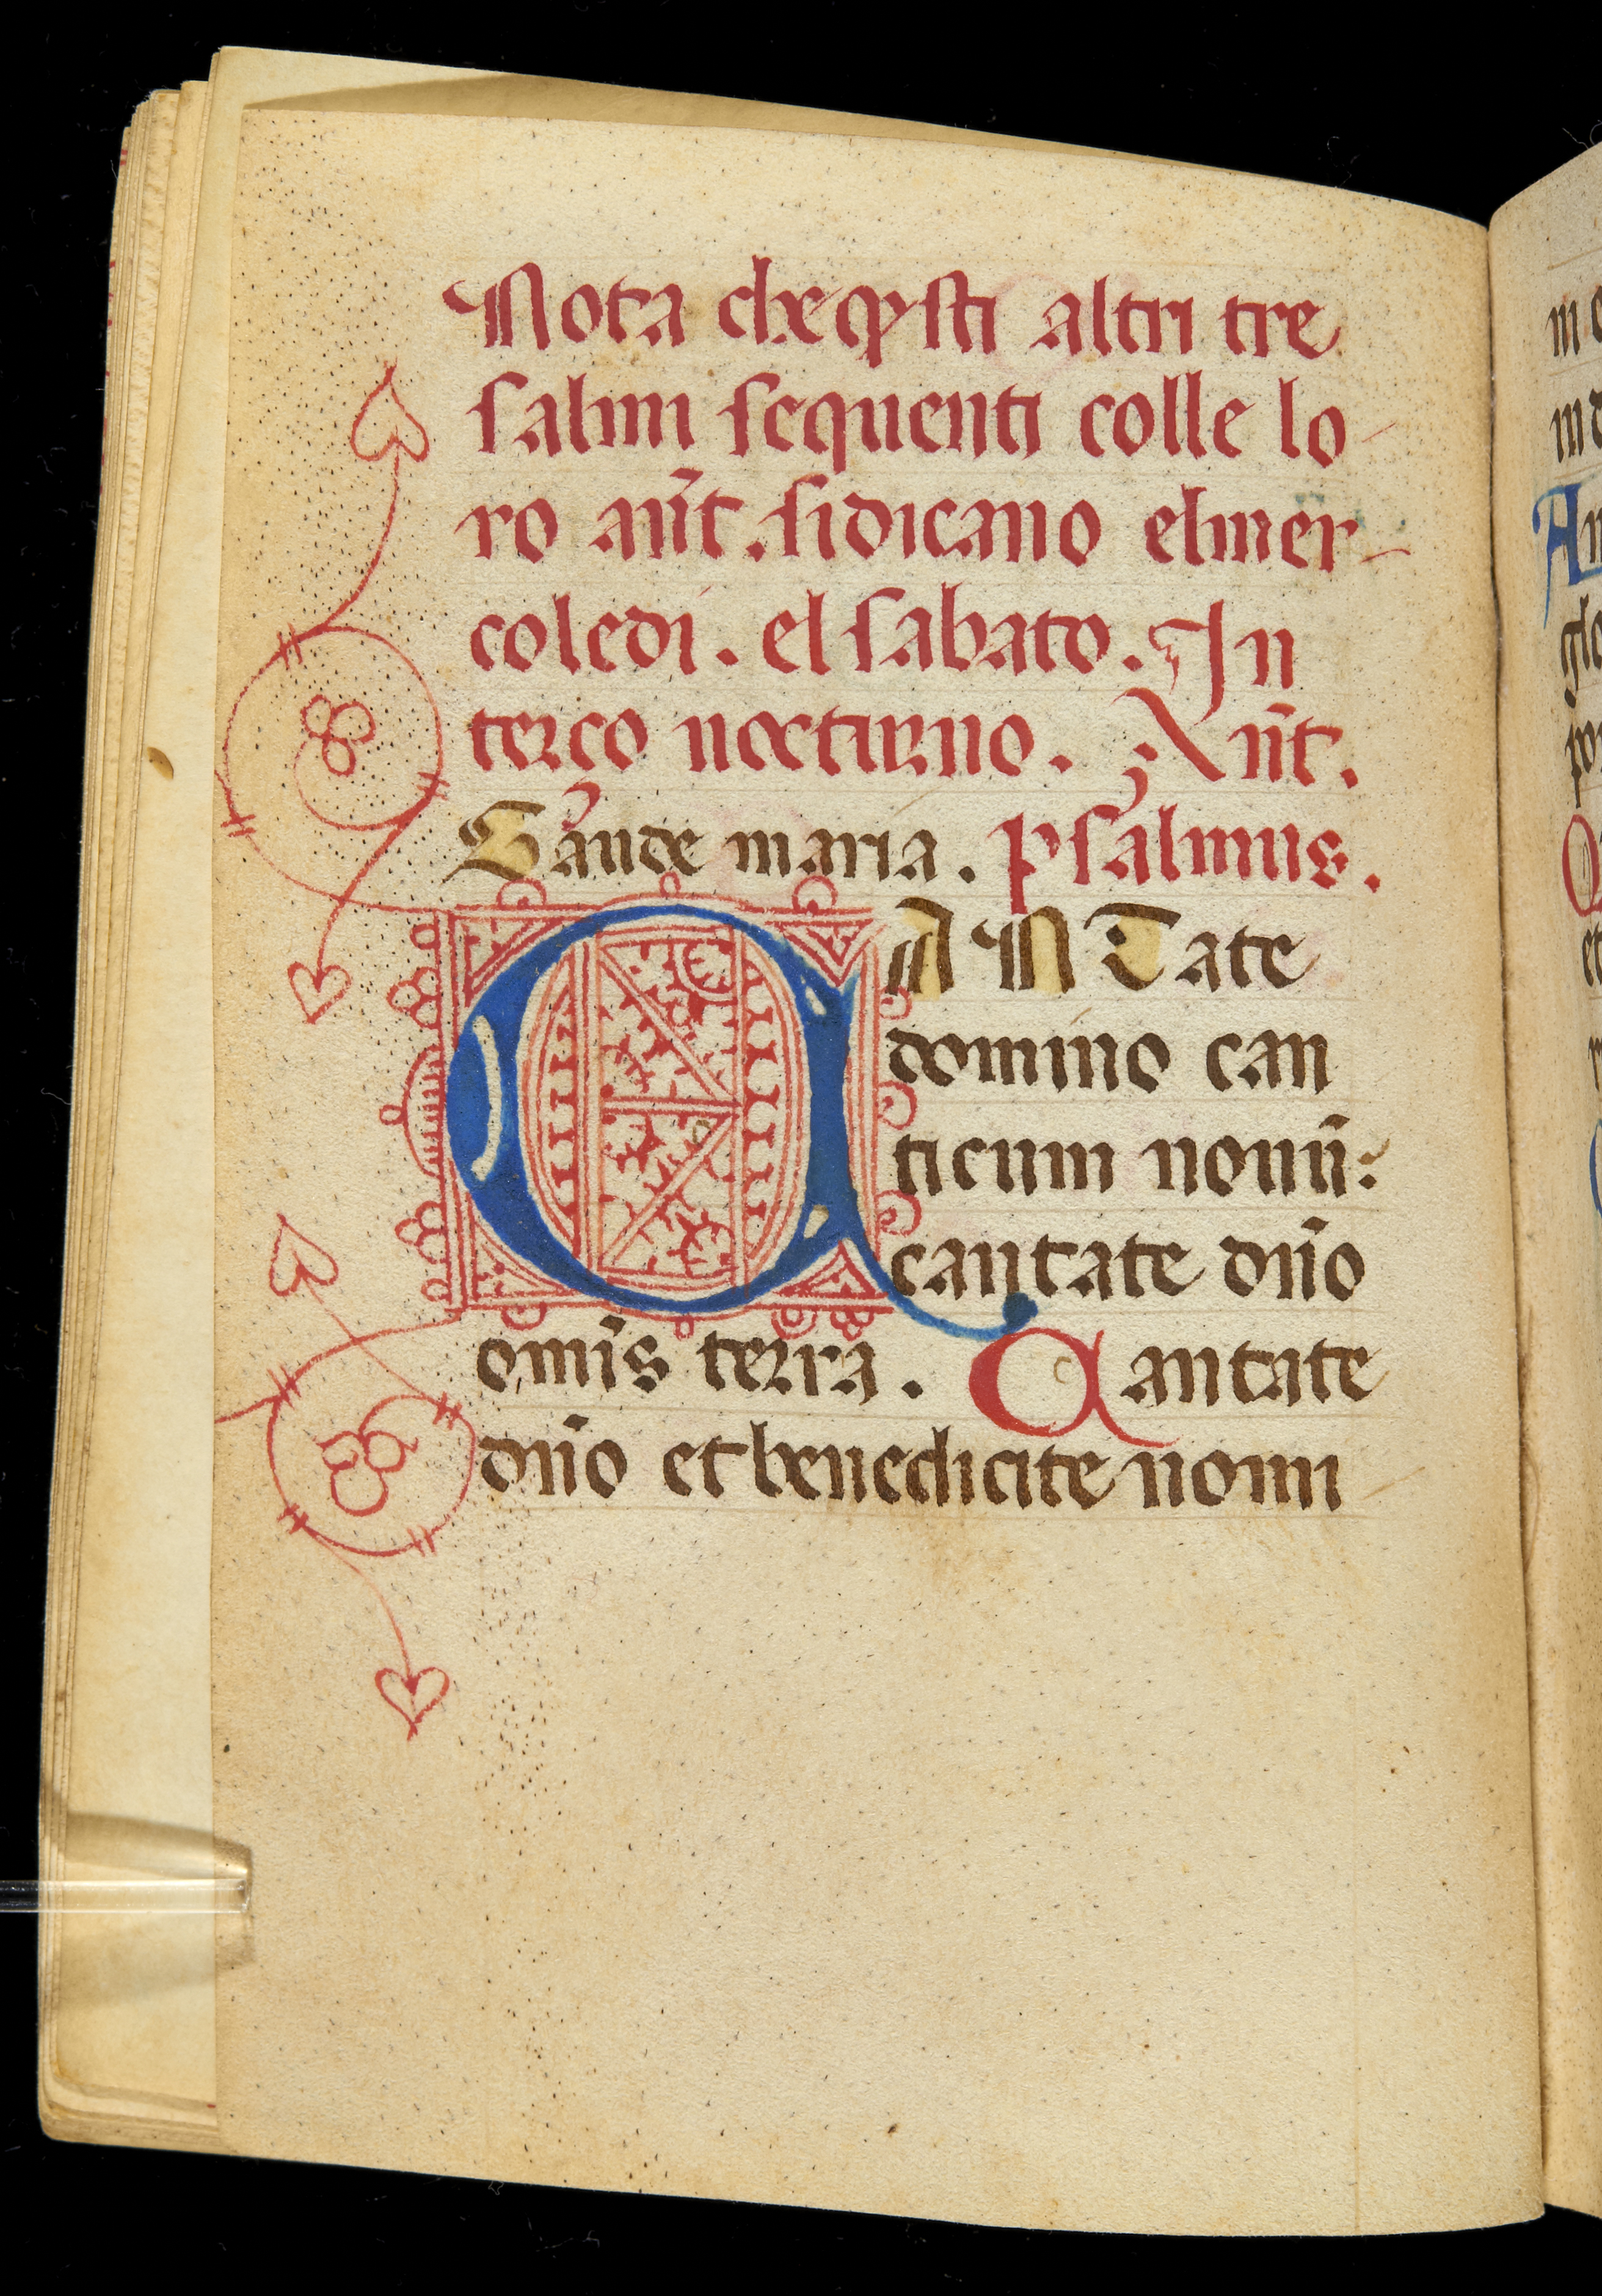 Nota che q̃sti altri tre
salmi sequenti colle lo
ro añt. si dicano el mer
coledi. el sabato. In
terço nocturno. Añt.
Gaude maria. Psalmus.
CANTate
domino can
ticum nouũ:
cantate dño
omĩs terra. Cantate
dño et benedicite nomi